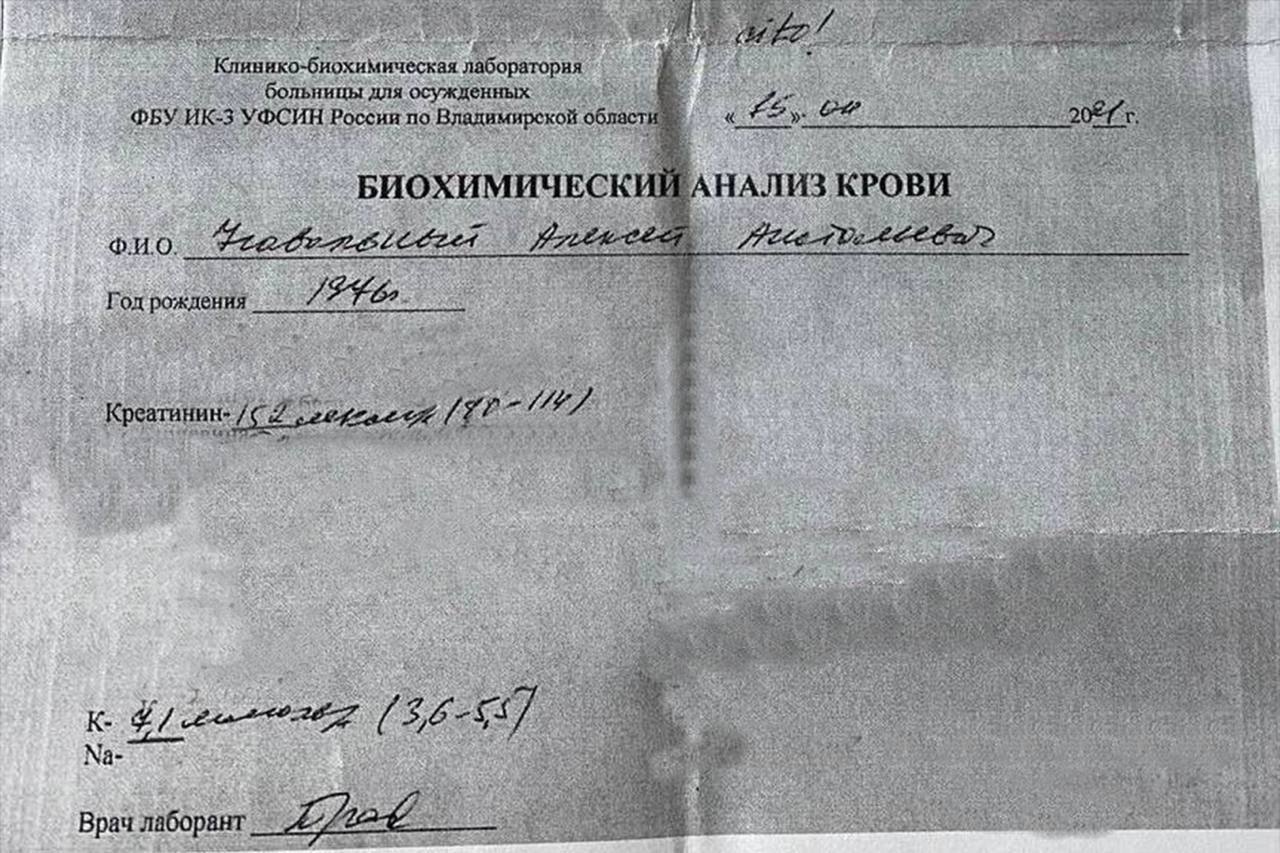 cito!
Клинико-биохимическая лаборатория
больницы для осужденных
ФБУ ИК-3 УФСИН России по Владимирской области
«15». 04 2021 г.
БИОХИМИЧЕСКИЙ АНАЛИЗ КРОВИ
Ф.И.О. Навальный Алексей Анатольевич
Год рождения 1976г.
Креатинин- 152 мкмоль (80-114)
К- 7,1 ммоль (3,6-5,5)
Na-
Врач лаборант